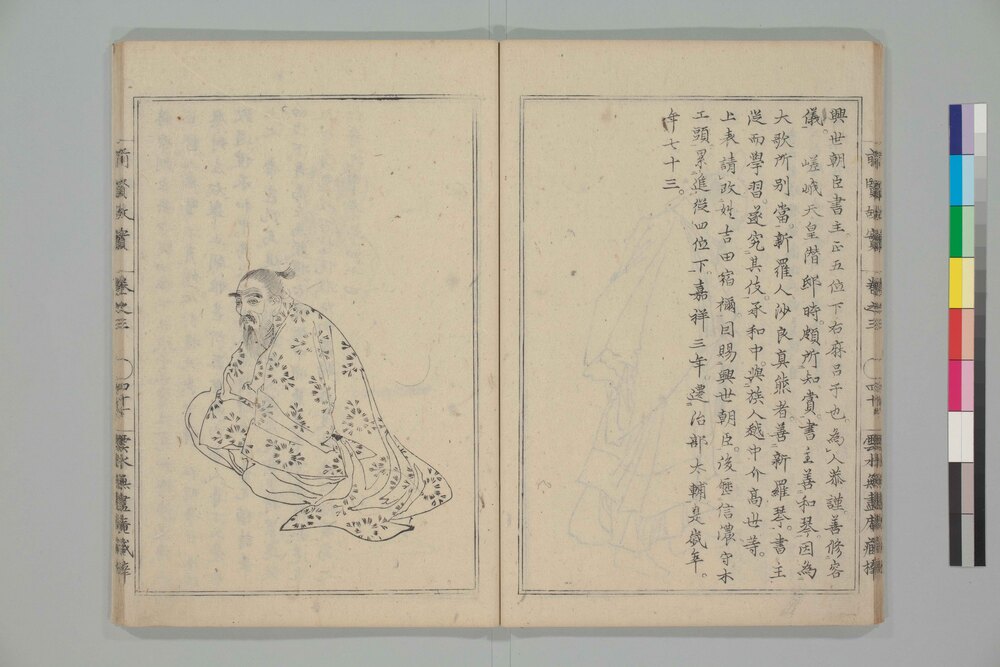 興世朝臣書主正五位下右麻呂子也。為人恭謹善修容
儀。嵯峨天皇潛邸時頗所知賞書主善和琴。因為
大歌所別當。新羅人沙良真熊者善新羅琴。書主
從而學習。遂究其伎。承和中。與族人越中介高世等。
上表請改姓吉田宿禰。因賜興世朝臣。後歷信濃守木
工頭累進從四位下。嘉祥三年遷治部大輔是歲卒。
年七十三。
前賢故實
卷之三
雲水無盡庵藏梓
前賢故實
卷之三
四十
雲水無盡庵藏梓